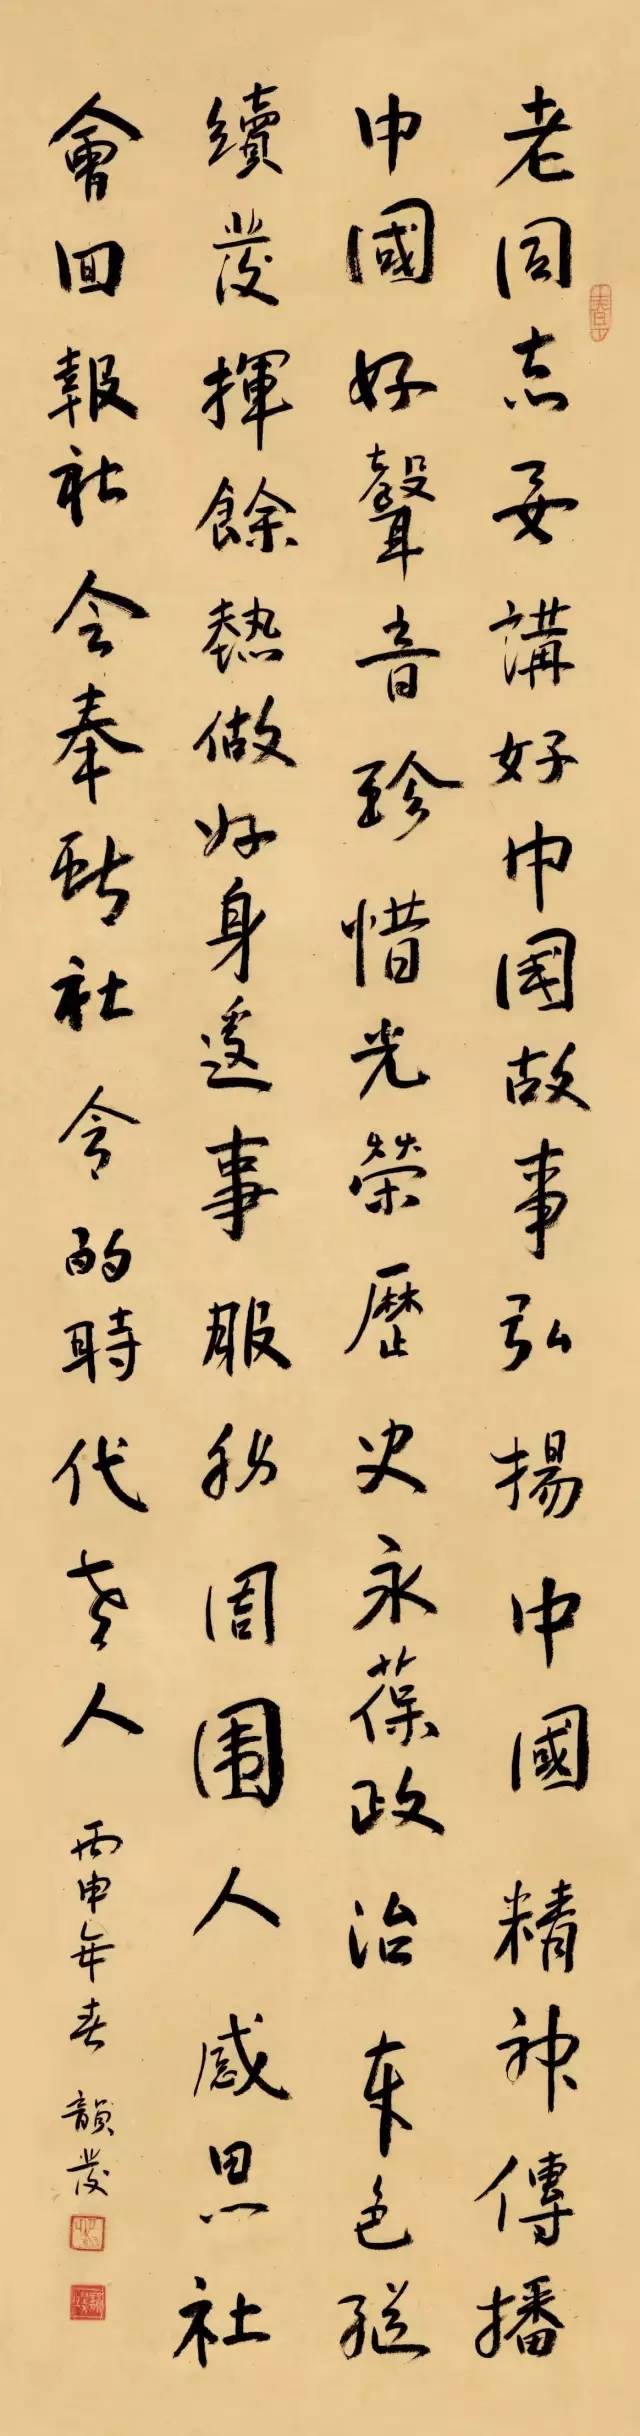 老同志要講好中國故事弘揚中國精神傳播
中國好聲音珍惜光榮歷史永葆政治本色繼
續發揮餘熱做好身邊事服務周围人感恩社
會回報社会奉獻社會的時代老人
丙申年春 韻發